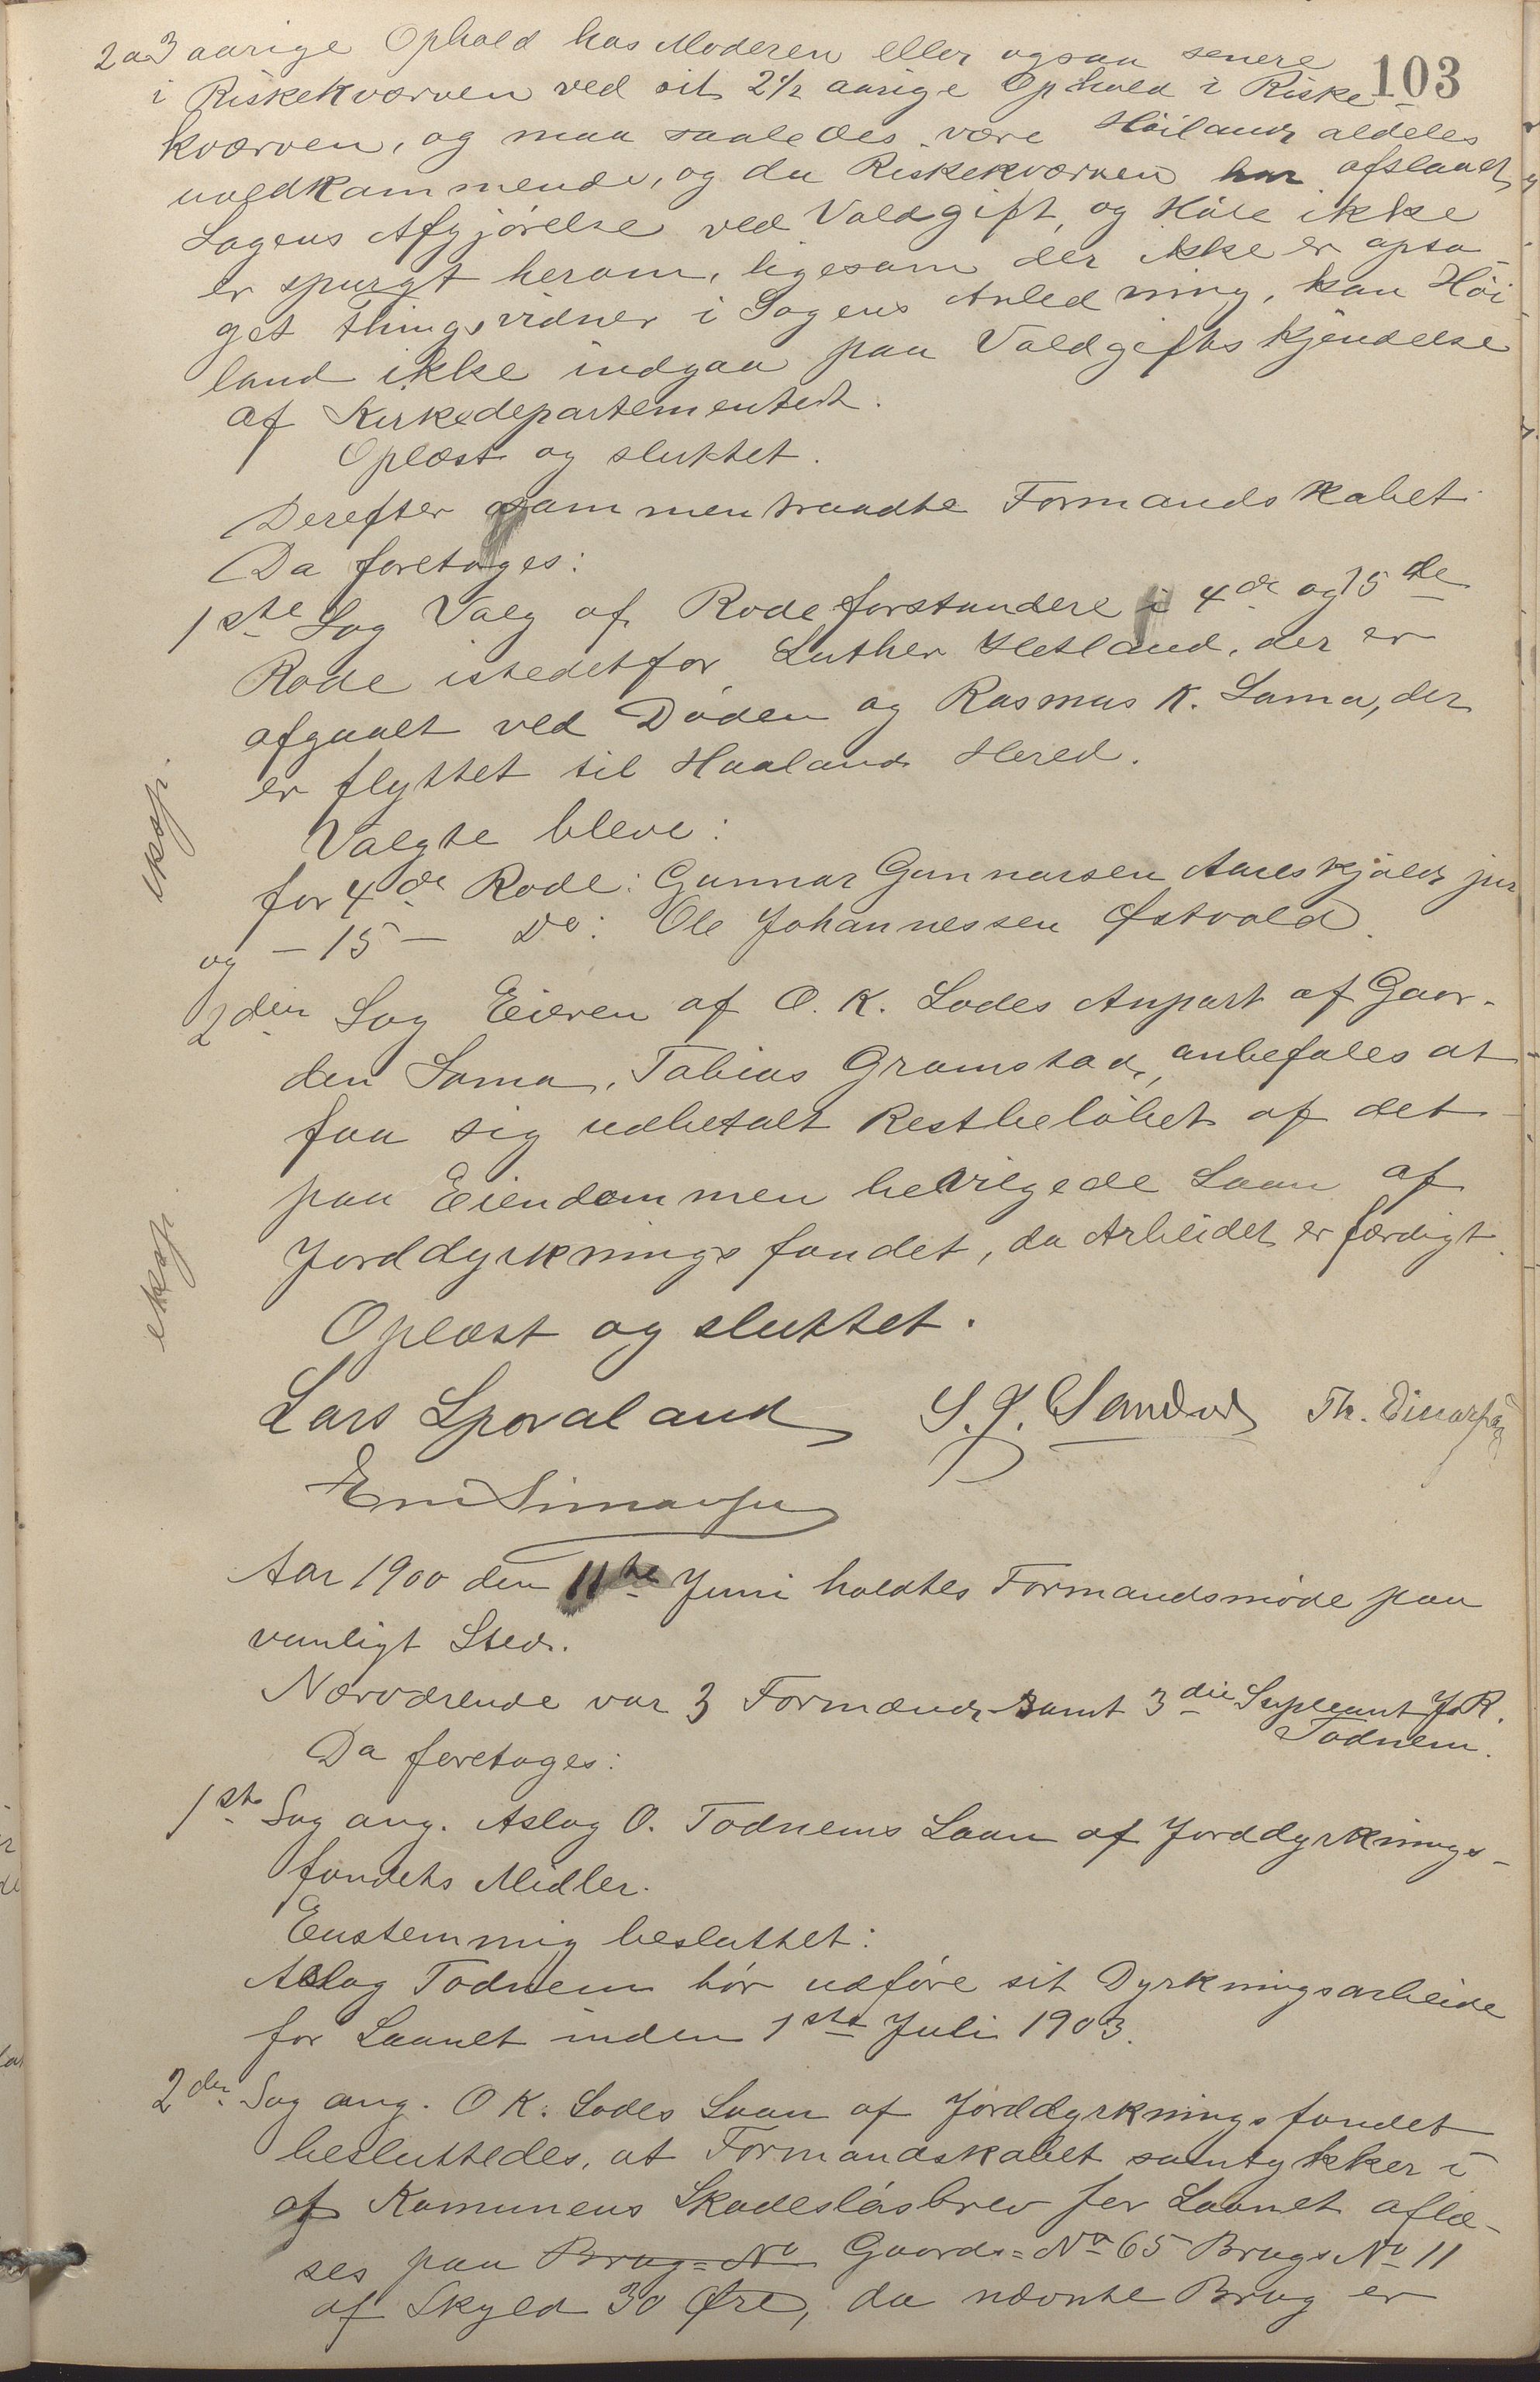 103
2 a 3 aarige Ophold hos Moderen eller ogsaa senere
i Riskekværven ved sit 2½ aarige Ophold i Riske
kværven, og maa saaledes være Höiland aldeles
uvedkammende, og da Riskekværven har afslaaet
Sagens Afgjörelse ved Voldgift, og Håle ikke
er spurgt herom, ligesom der ikke er opta
get Thingsvidner i Sagens Anledning, kan Höi
land ikke indgaa paa Voldgifts kjendelse
af Kirkedepartementet.
Oplæst og sluttet.
Derefter sammentraadte Formandskabet
Da foretoges:
1ste Sag Valg af Rodeforstandere i 4de og 15de
Rode istedetfor Luther Hetland, der er
afgaaet ved Döden og Rasmus K. Soma, der
er flyttet til Haaland Hered.
Valgte bleve:
eksp.
for 4de Rode: Gunnar Gunnarsen Aareskjold jur
og - 15 - Do: Ole Johannessen Østvold.
2den Sag Eieren af O. K. Lodes Anpart af Gaar-
den Soma, Tobias Gramstad, anbefales at
faa sig udbetalt Restbelöbet af det
paa Eiendommen bevilgede Laan af
eksp.
Jorddyrkningsfondet, da Arbeidet er færdigt.
Oplæst og sluttet.
Lars Sporaland S. J. Sandvd Th.
Simonsen
Aar 1900 den 11te Juni holdtes Formandsmöde paa
vanligt Sted.
Nærværende var 3 Formænd samt 3die Supleant J. R.
Todnem.
Da foretoges:
1ste Sag ang. Aslag O. Todnems Laan af Jorddyrknings-
fondets Midler.
Enstemmig besluttet:
Aslag Todnem bör udföre sit Dyrkningsarbeide
for Laanet inden 1ste Juli 1903.
2den Sag ang. O K. Lodes Laan af Jorddyrkningsfondet
besluttedes, at Formandskabet samtykker i
at Kamunens Skadeslösbrev for Laanet aflæ-
ses paa Brug=No Gaards=No 65 Brugs No 11
af Skyld 30 Øre, da nævnte Brug er